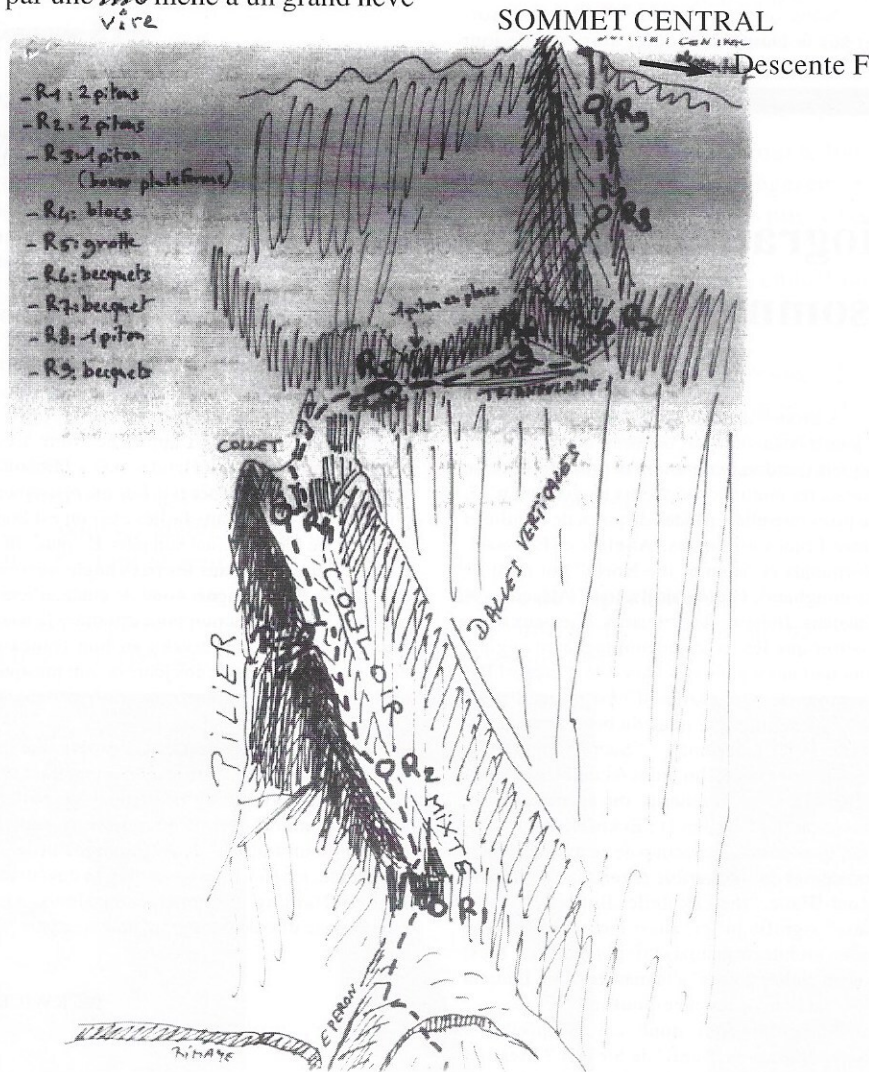 par une mène à un grand névé
vire
SOMMET CENTRAL
SOMMET CENTRAL
Descente F
- R1: 2 pitons
- R2: 2 pitons
- R3: 1 piton
(bonne plateforme)
- R4: blocs
- R5: grotte
- R6: becquets
- R7: becquet
- R8: 1 piton
- R9: becquets
R9
R8
1 piton en place
R7
R6
R5
NEVE
TRIANGULAIRE
COLLET
R4
DALLES VERTICALES
COULOIR
PILIER
R3
R2
MIXTE
R1
EPERON
RIMAYE